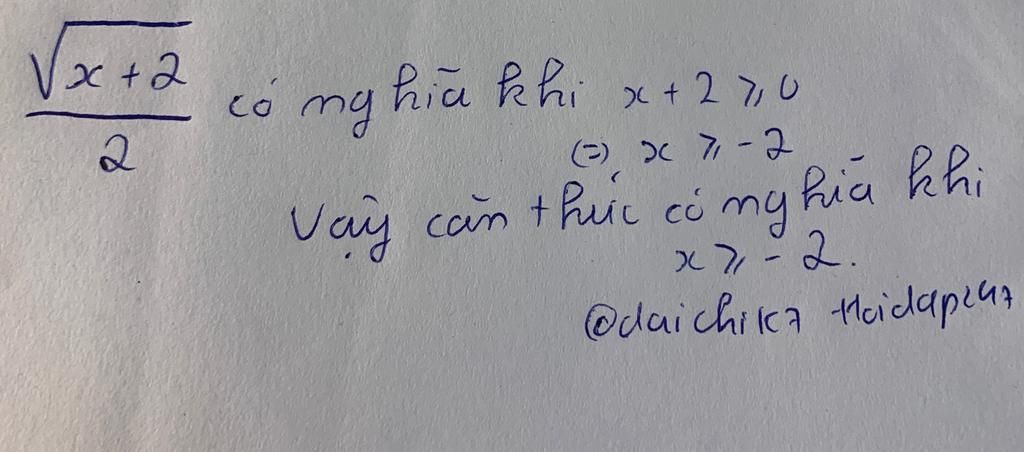 \frac{\sqrt{x+2}}{2} có nghĩa khi x + 2 ⩾ 0
(=) x ⩾ -2
Vậy căn thức có nghĩa khi
x ⩾ -2.
@daichik7 Hoidap247